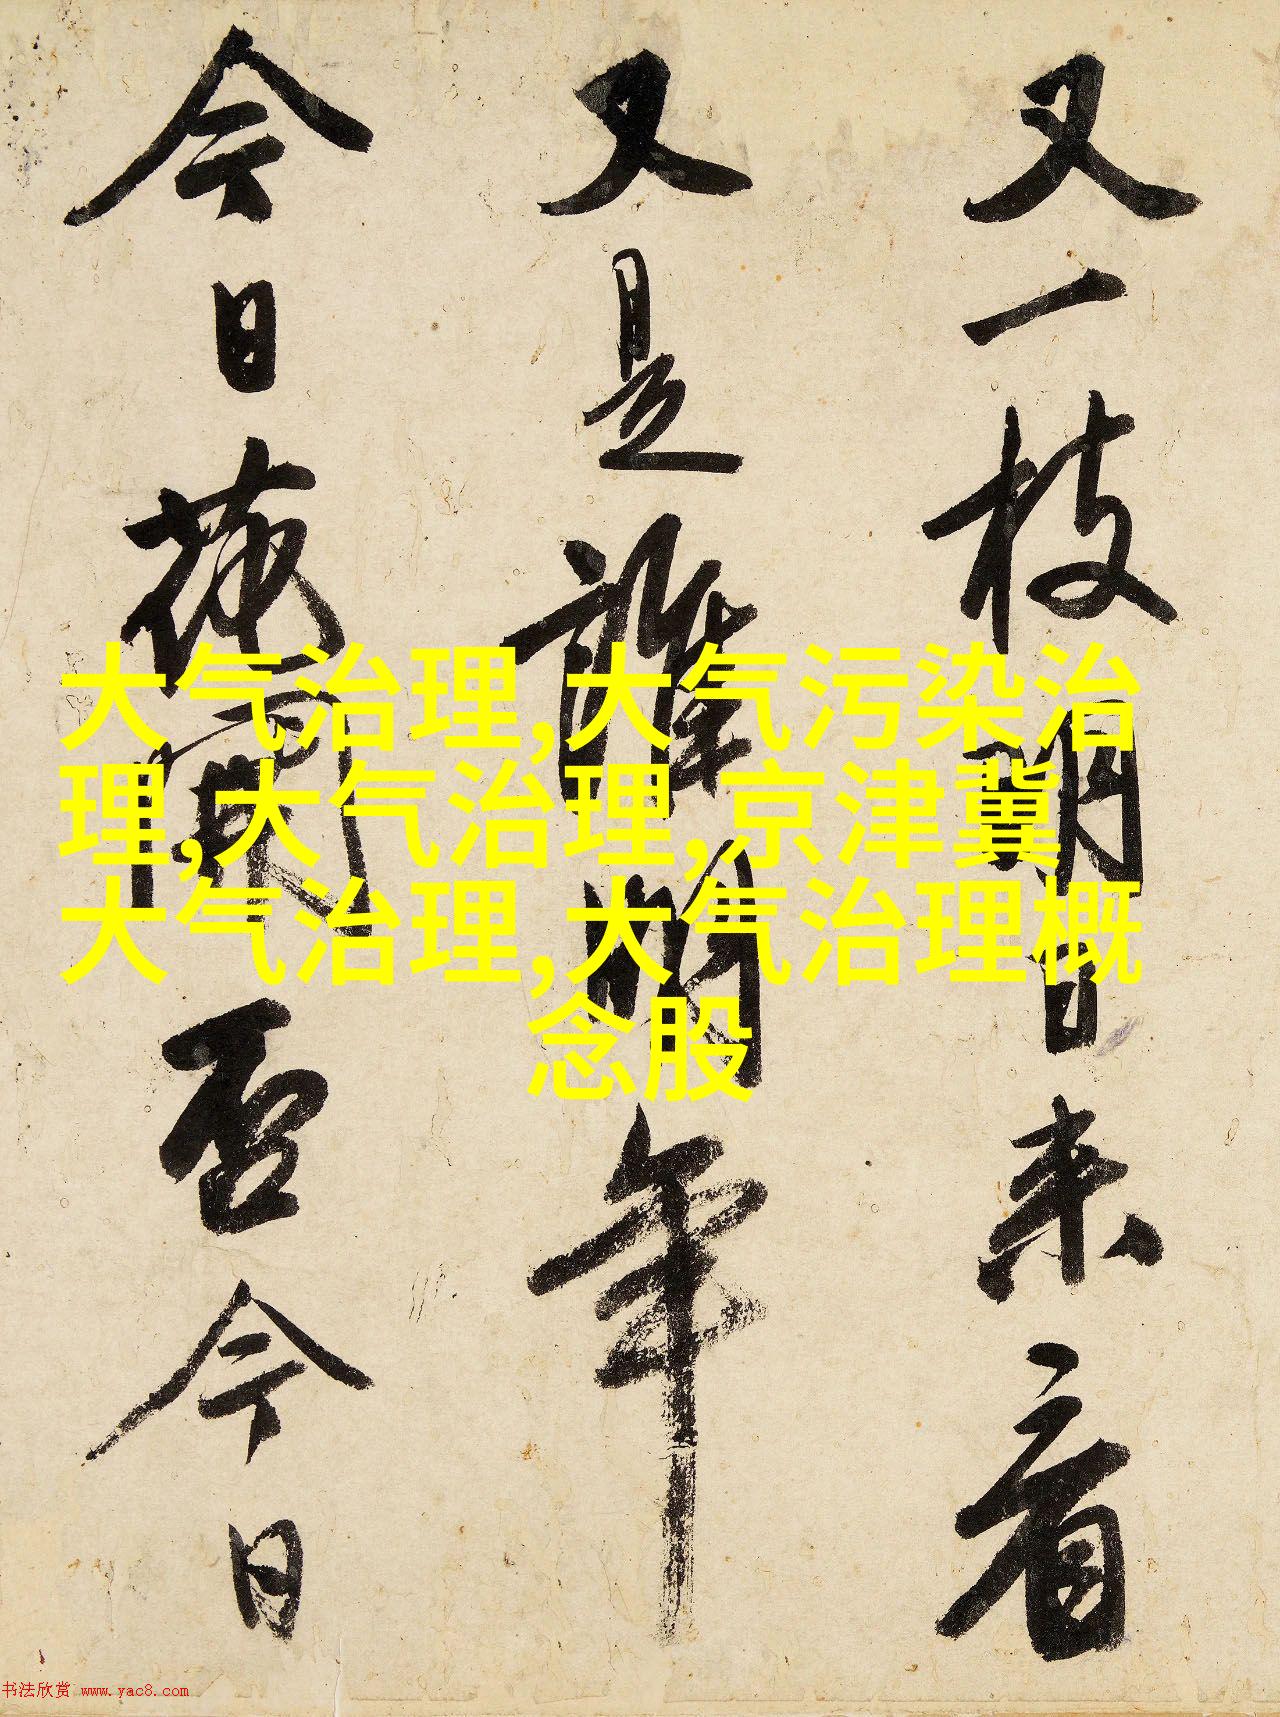 又一枝明日来看
又是誰明年
今日蔭蘭否今日
大气治理,大气污染治
理,大气治理,京津冀
大气治理,大气治理概
念股
书法欣赏 www.yac8.com